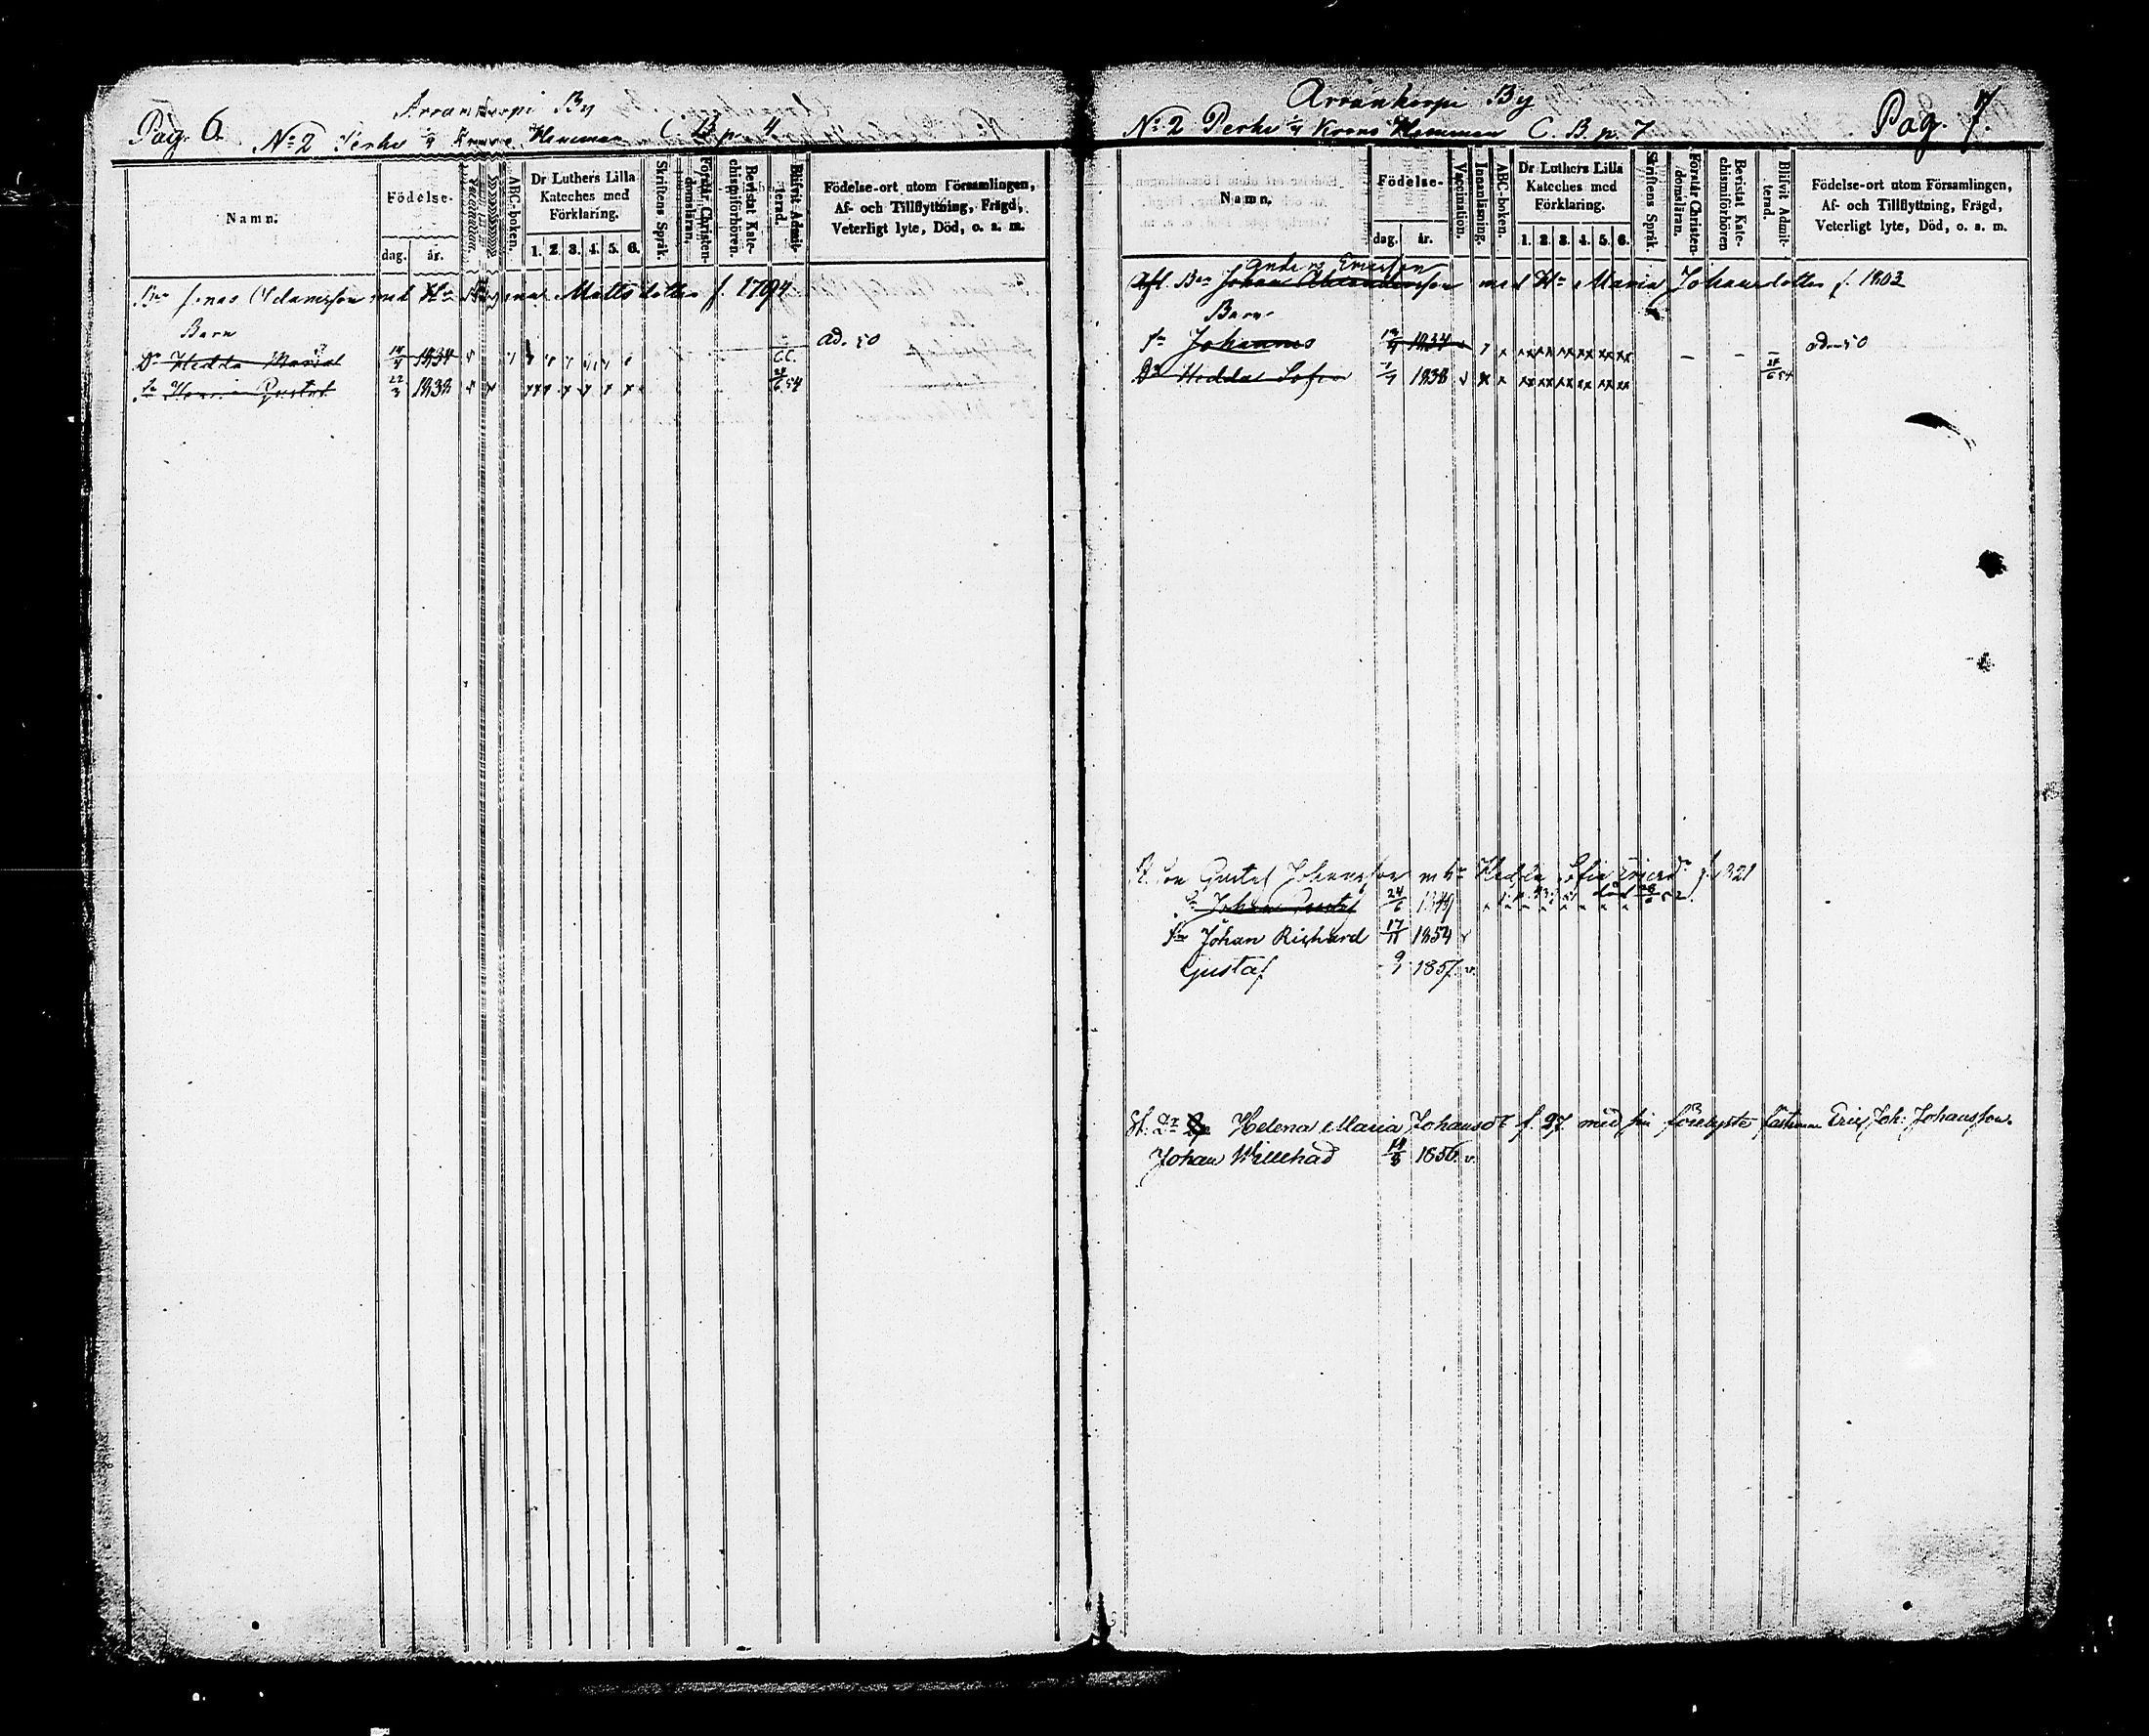 Pag. 6.
Arrankorpi By
No 2 Perhe 1/4 Krono Hemman C. B. p. 4.
Namn.
Födelse-
dag. år.
Vaccination.
ABC-boken.
Dr Luthers Lilla Kateches med Förklaring.
1. 2. 3. 4. 5. 6.
Skriftens Språk.
Förstår Christen-domsläran.
Bevistat Kate-chismiförhören.
Blifvit Admit-terad.
Födelse-ort utom Församlingen, Af- och Tillflyttning, Frägd, Veterligt lyte, Död, o. s. m.
Bon Jonas Adamsson med Hu Matts dotter f. 1794
Barn
Dr Hedda Maria 14/4 1834 ad. 50
Sn Gustaf 22/3 1838 24/6 54
Arrankorpi By
No 2 Perhe 1/4 Krono Hemman C. B. p. 7
Pag. 7.
Namn.
Födelse-
dag. år.
Vaccination.
Innanläsning.
ABC-boken.
Dr Luthers Lilla Kateches med Förklaring.
1. 2. 3. 4. 5. 6.
Skriftens Språk.
Förstår Christen-domsläran.
Bevistat Kate-chismiförhören
Blifvit Admit-terad.
Födelse-ort utom Församlingen, Af- och Tillflyttning, Frägd, Veterligt lyte, Död, o. s. m.
Anders Ericsson
Afl. Bon Johan med Hu Maria Johansdotter f. 1803
Barn
Sn Johannes 1834 ad. 50
Dr Hedda Sofia 1/4 1838 24/6 54
Gustaf Johansson m hu Hedda Sofia Ericsdr f. 1821
Sn Johan Gustaf 24/6 1849 död 28/6 52
Sn Johan Richard 17/11 1854 v
Gustaf 9/7 1857. v.
Helena Maria Johansdr f. 37 med sin förelyste fästeman Eric Joh: Johansson.
Johan Willehad 14/8 1856. v.